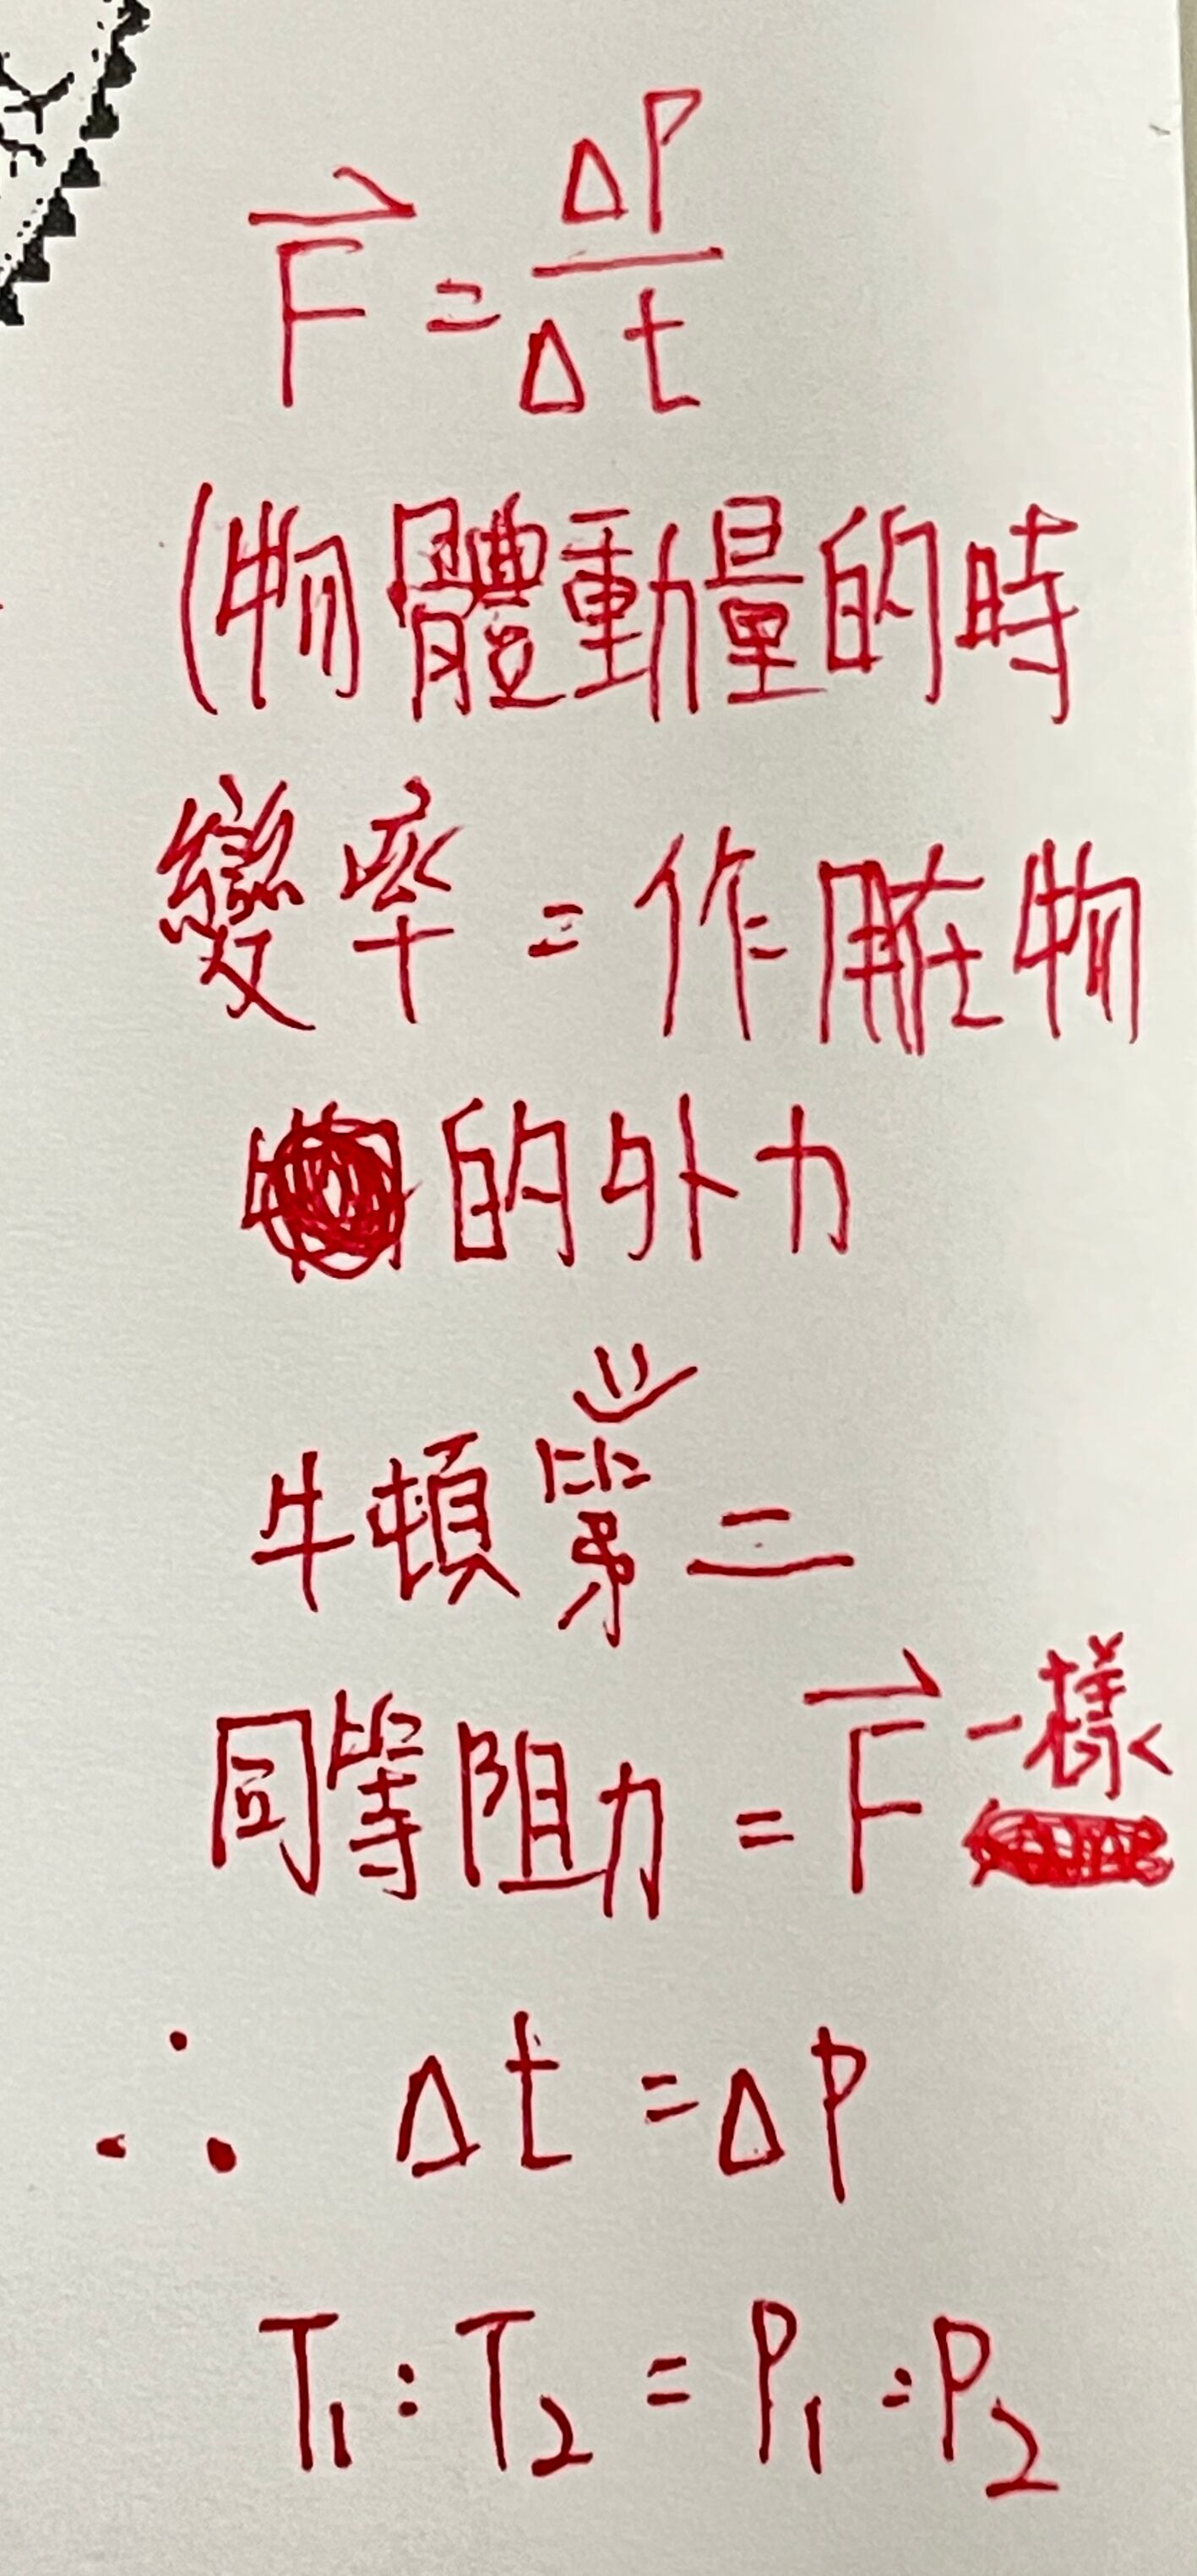 F⃗ = ΔP/Δt
(物體動量的時
變率 = 作用在物
的外力
牛頓第二
同等阻力 = F⃗ 一樣
∴ Δt = ΔP
T₁ : T₂ = P₁ : P₂